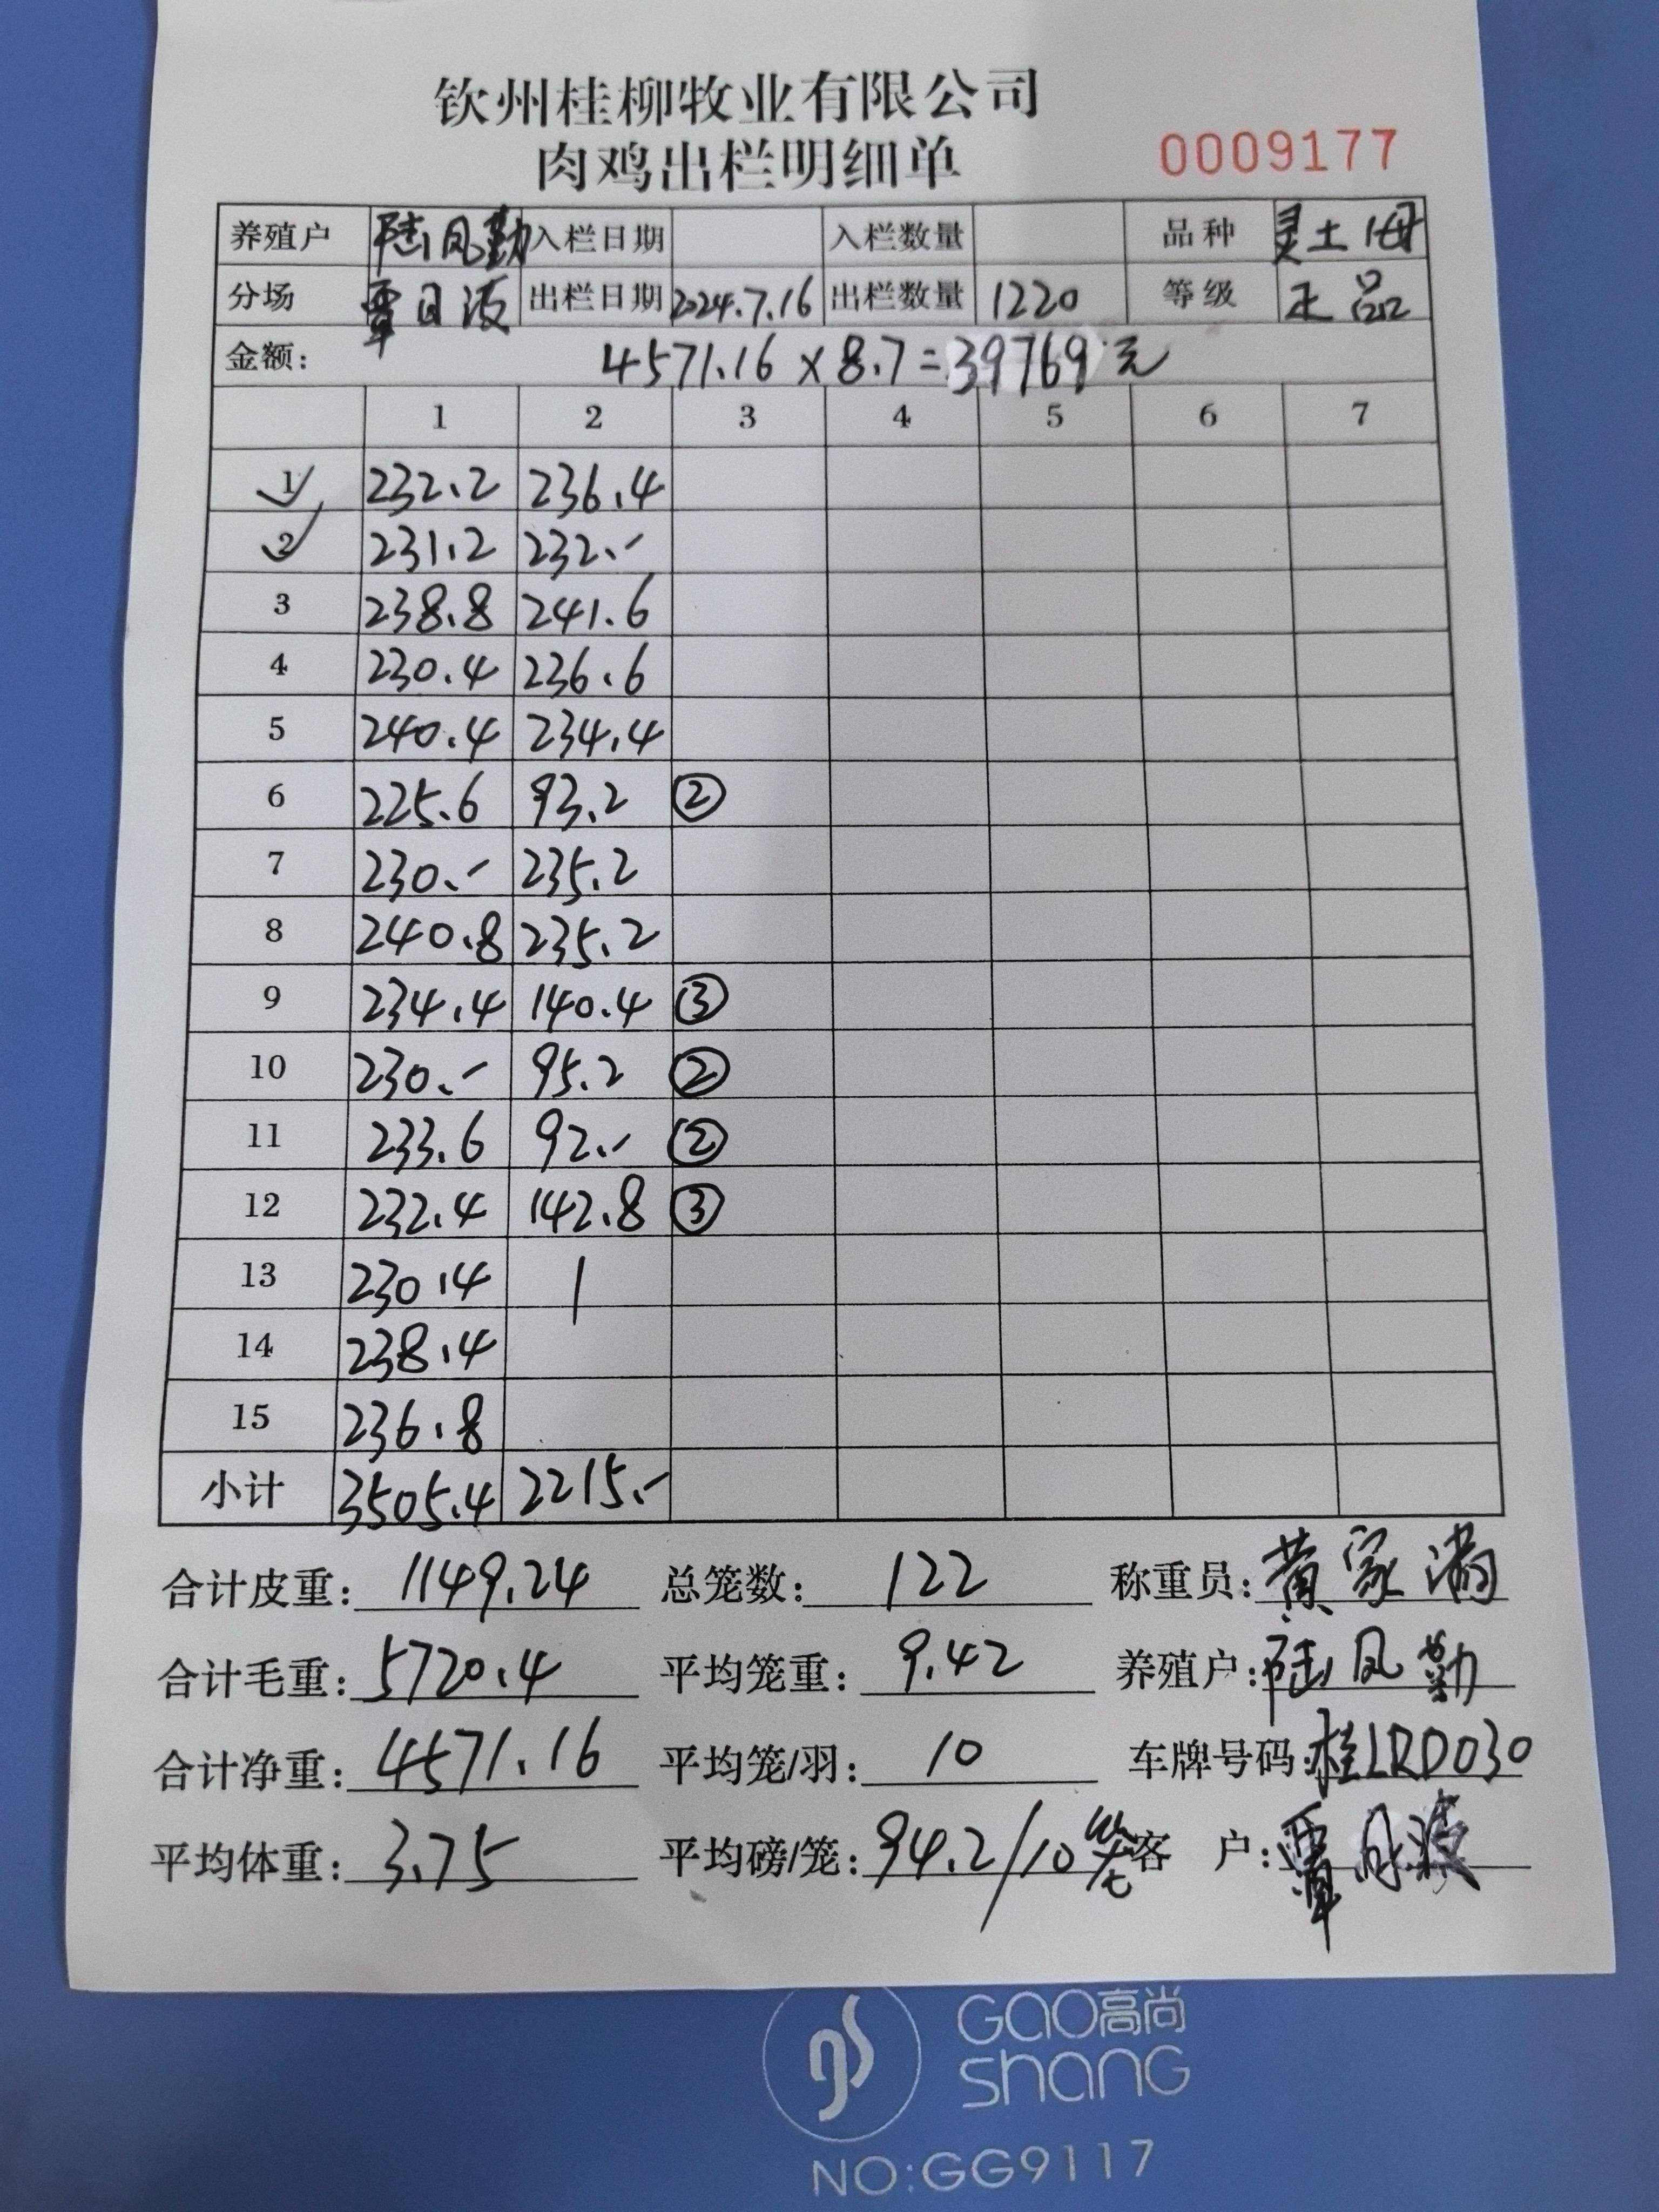 钦州桂柳牧业有限公司
肉鸡出栏明细单 0009177
养殖户 陆凤勤 入栏日期 入栏数量 品种 灵土1母
分场 覃日波 出栏日期 2024.7.16 出栏数量 1220 等级 正品
金额: 4571.16×8.7=39769元
1 2 3 4 5 6 7
1 232.2 236.4
2 231.2 232.-
3 238.8 241.6
4 230.4 236.6
5 240.4 234.4
6 225.6 93.2 ②
7 230.- 235.2
8 240.8 235.2
9 234.4 140.4 ③
10 230.- 95.2 ②
11 233.6 92.- ②
12 232.4 142.8 ③
13 230.4
14 238.4
15 236.8
小计 3505.4 2215.-
合计皮重: 1149.24 总笼数: 122 称重员: 黄家满
合计毛重: 5720.4 平均笼重: 9.42 养殖户: 陆凤勤
合计净重: 4571.16 平均笼/羽: 10 车牌号码: 桂LRD030
平均体重: 3.75 平均磅/笼: 94.2/10 客户: 覃日波
gs GAO高尚
shang
NO:GG9117